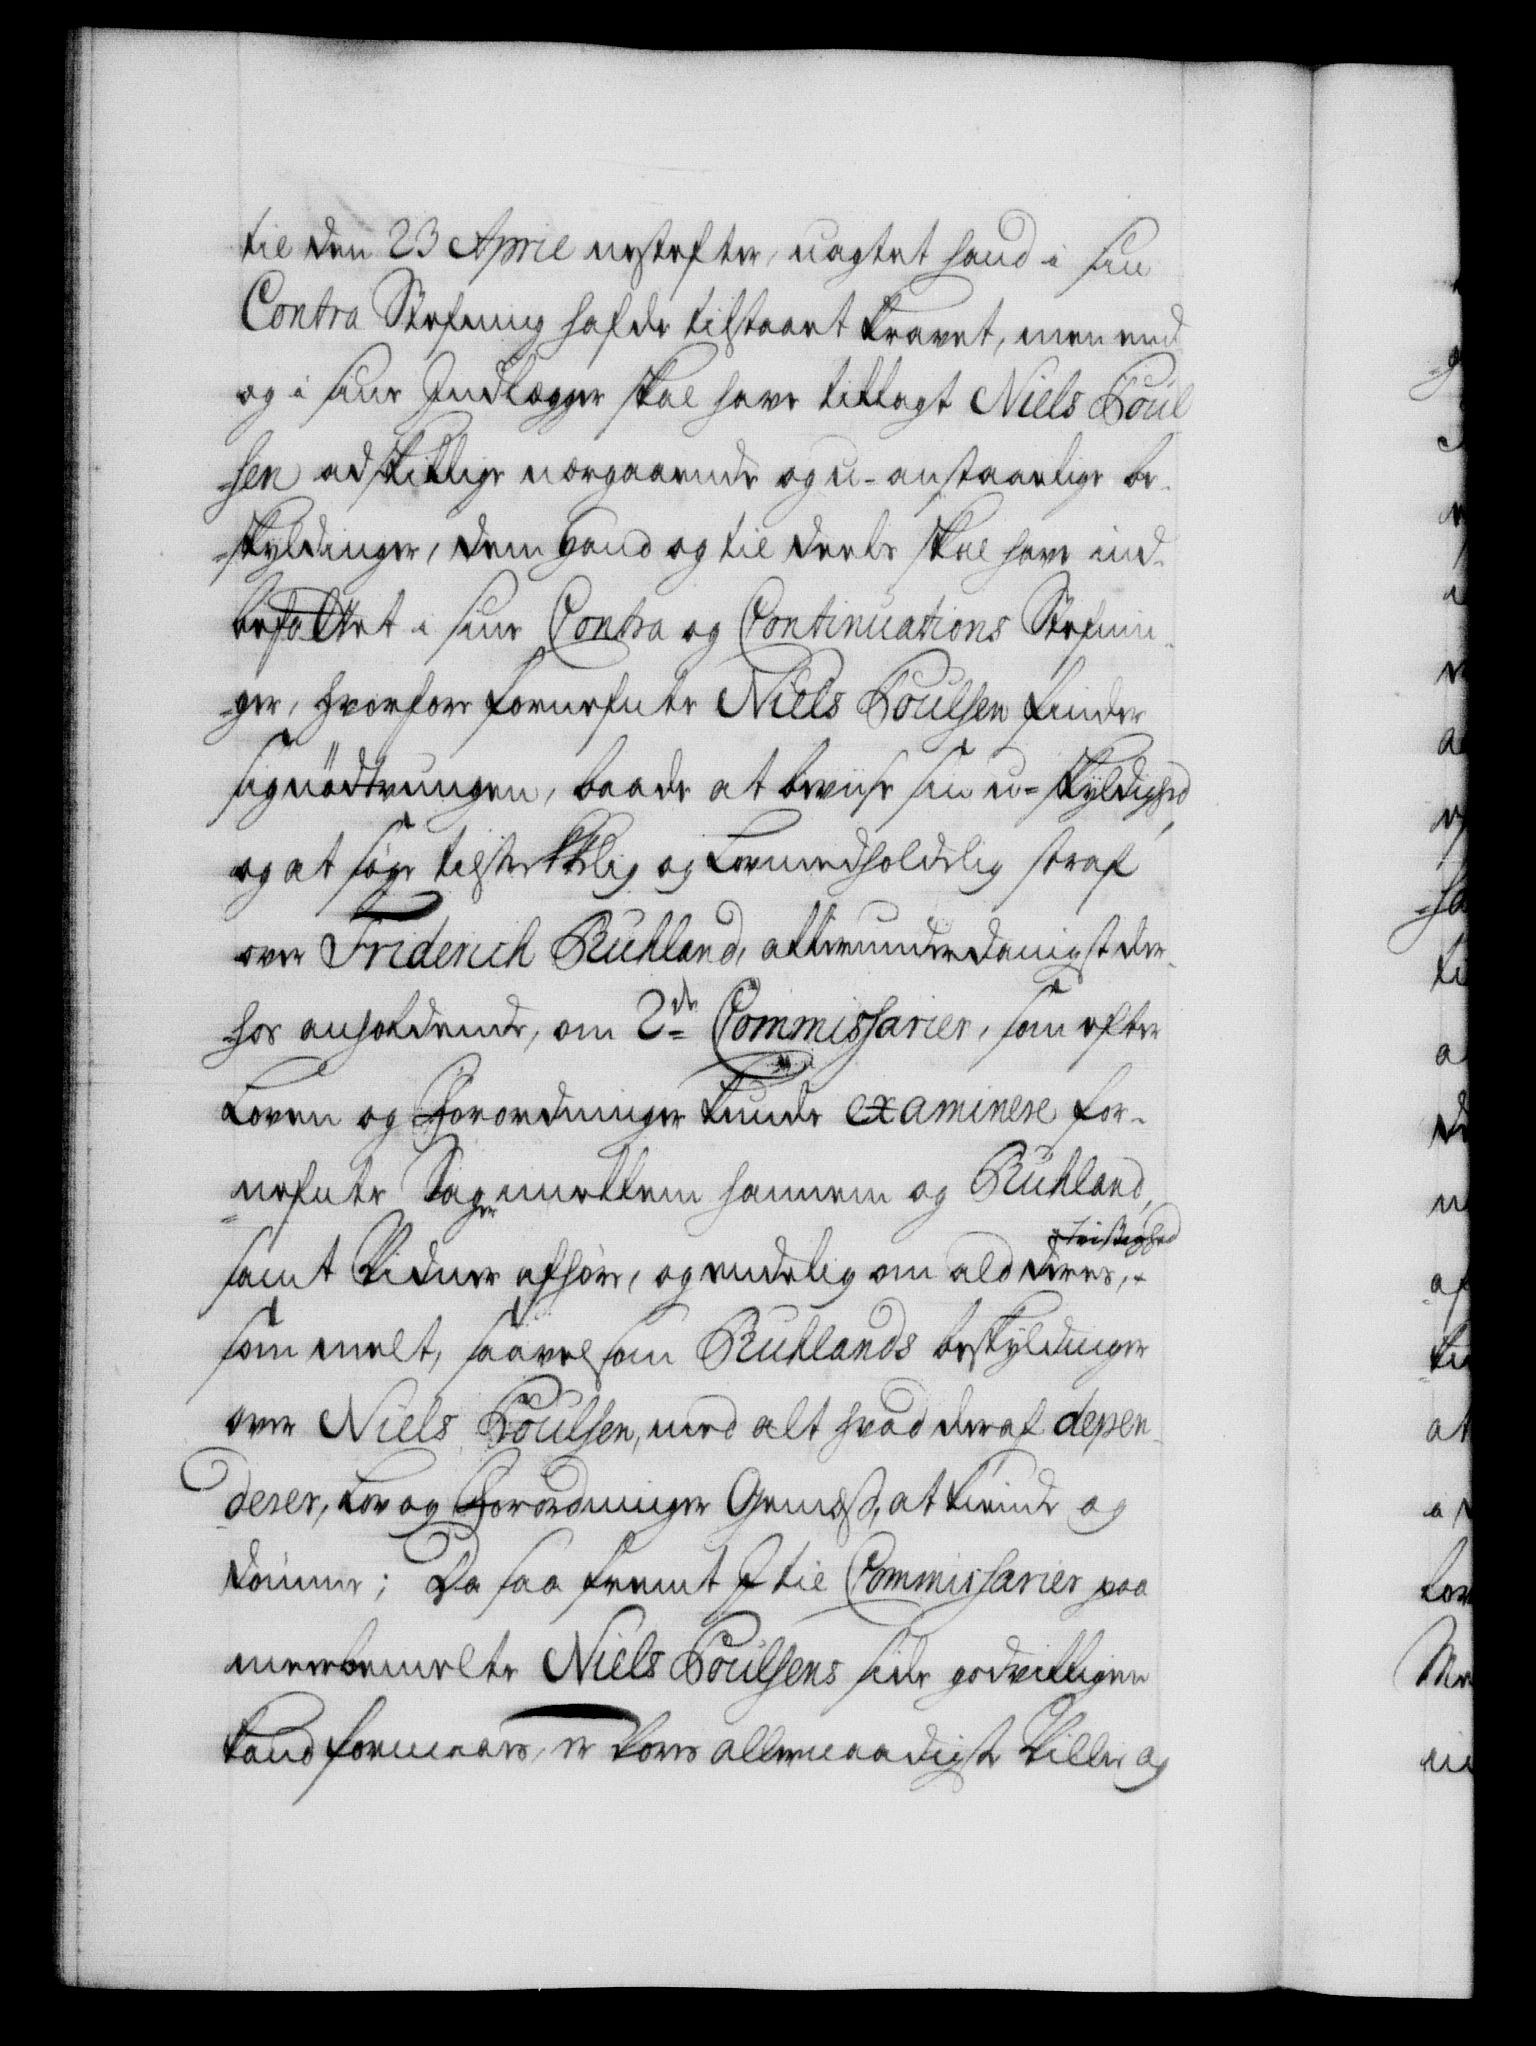 til den 23 April nestefter, uagtet hand i sin
Contra Stefning hafde tilstaaet kravet, men end
og i sine Indlægger skal have tillagt Niels Poul
-sen adskillige nærgaaende og u-anstaaelige be-
-skyldinger, dem hand og til deels skal have ind-
befattet i sine Contra og Continuations Stefnin-
-ger, hvorfore fornefnte Niels Poulsen finder
sig nödtrungen, baade at beviise sin u-skyldighed
og at söge tilstrekkelig og Lovmedholdelig straf
over Friderich Ruhland, allerunderdanigst der-
-hos anholdende, om 2de Commissarier, som efter
Loven og Forordninger kunde examinere for-
-nefnte Sager imellem hannem og Ruhland,
samt Vidner afhöre, og endelig om ald deres, tvistighed
som melt, saavelsom Ruhlands beskyldinger
over Niels Poulsen, med alt hvad deraf depen-
-derer, Lov og Forordninger Gemæss, at kiende og
dömme; Da saa fremt I til Commissarier paa
meerbemelte Niels Poulsens side godvilligen
tand formaaes, er Vores allernaadigste Villie og